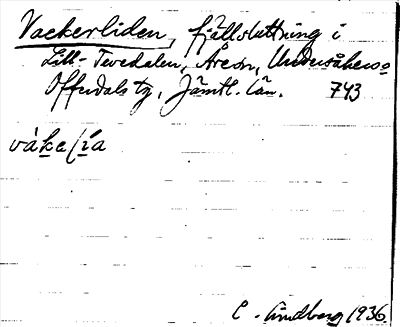 Vackerliden, fjällsluttning i
Lill-Tevedalen, Åreon, Undersåkers o
Offerdals tg, Jämtl. län. 743
C. Lindberg 1936.